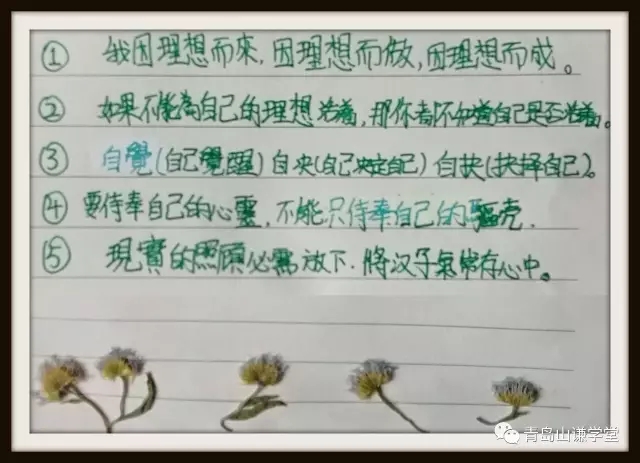 ① 我因理想而來,因理想而做,因理想而成。
② 如果不能為自己的理想活着,那你都不知道自己是否活着。
③ 自覺(自己覺醒)自決(自己決定自己)自抉(抉择自己)。
④ 要侍奉自己的心靈,不能只侍奉自己的驅壳.
⑤ 現實的照顧必需放下.將汉子氣常存心中。
青岛山谦学堂